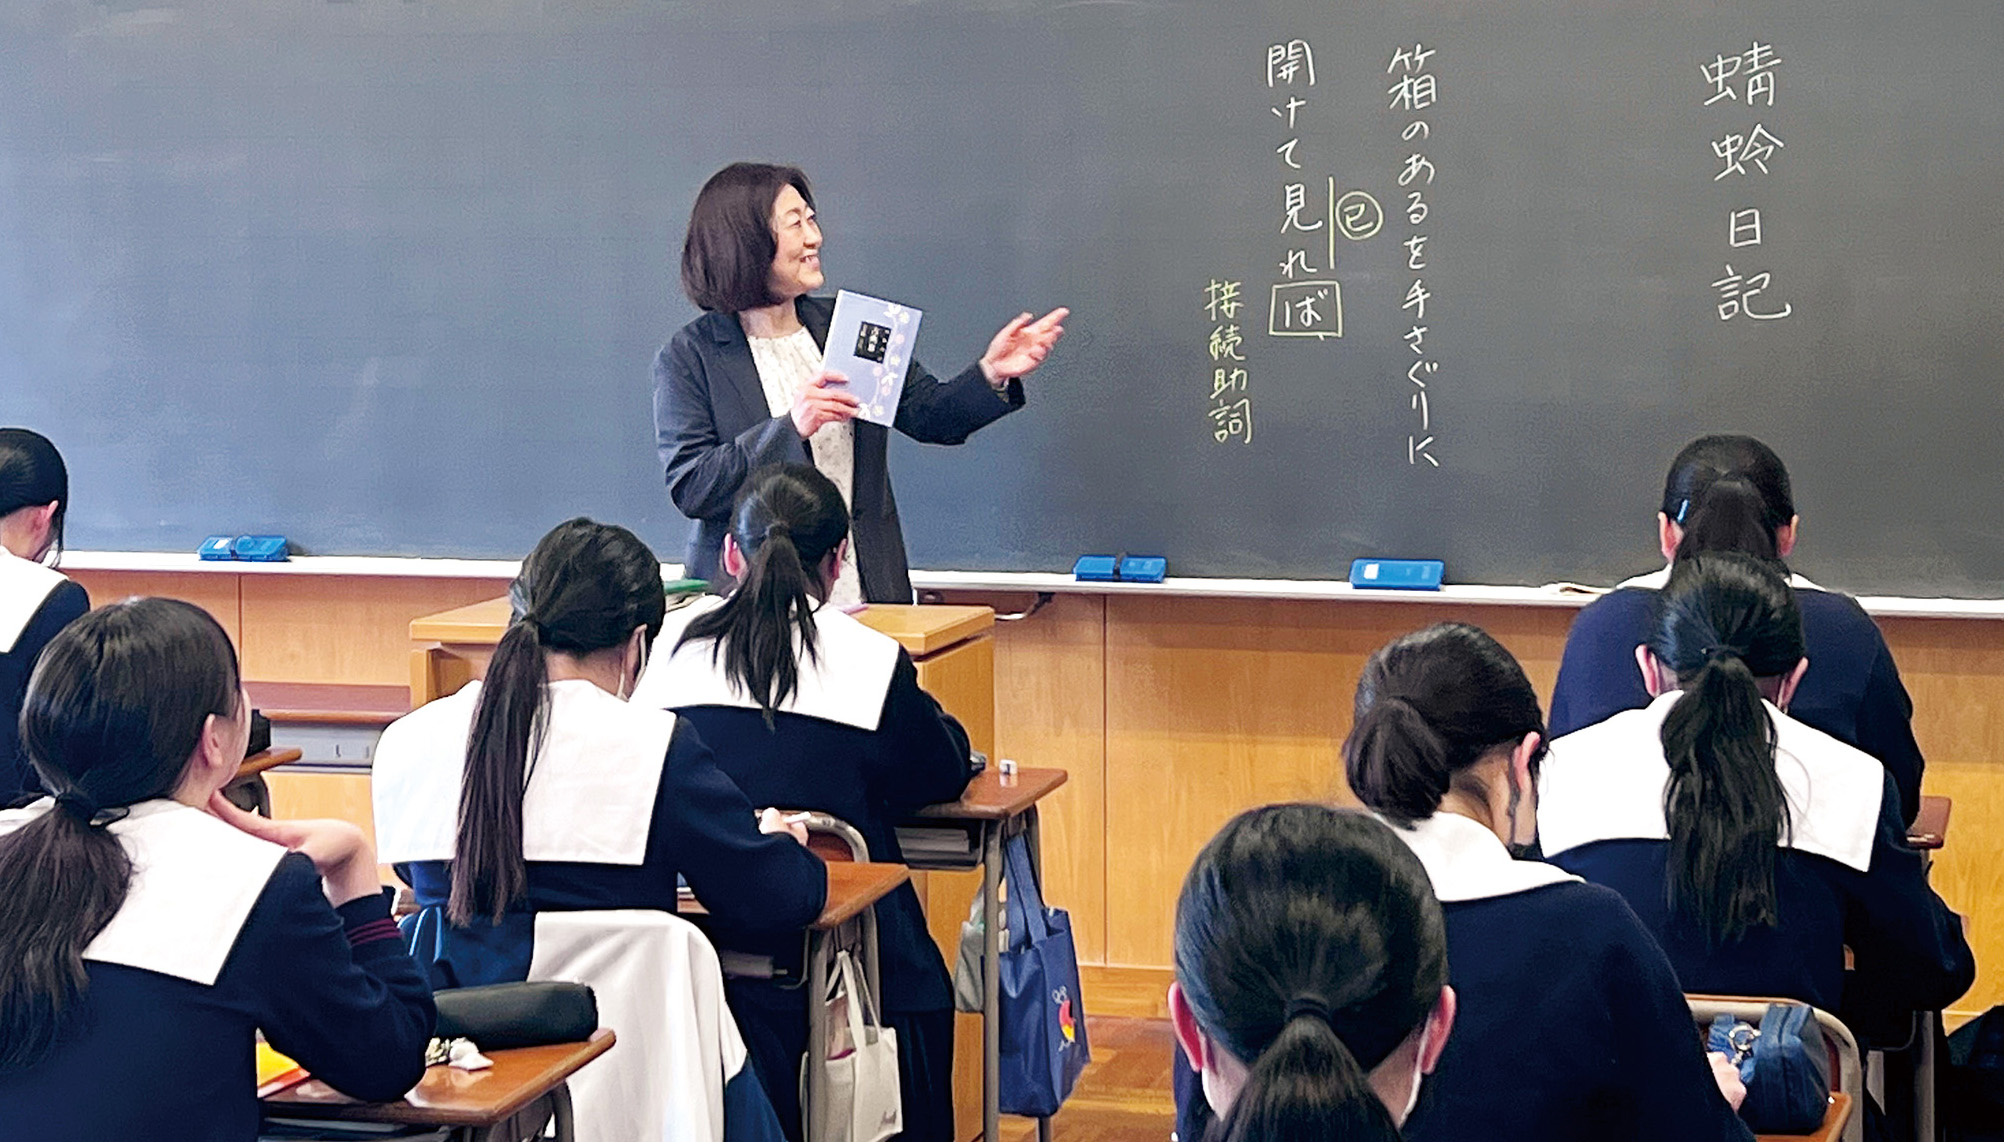 蜻蛉日記
箱のあるを手さぐりに
開けて見れば、
已
接続助詞